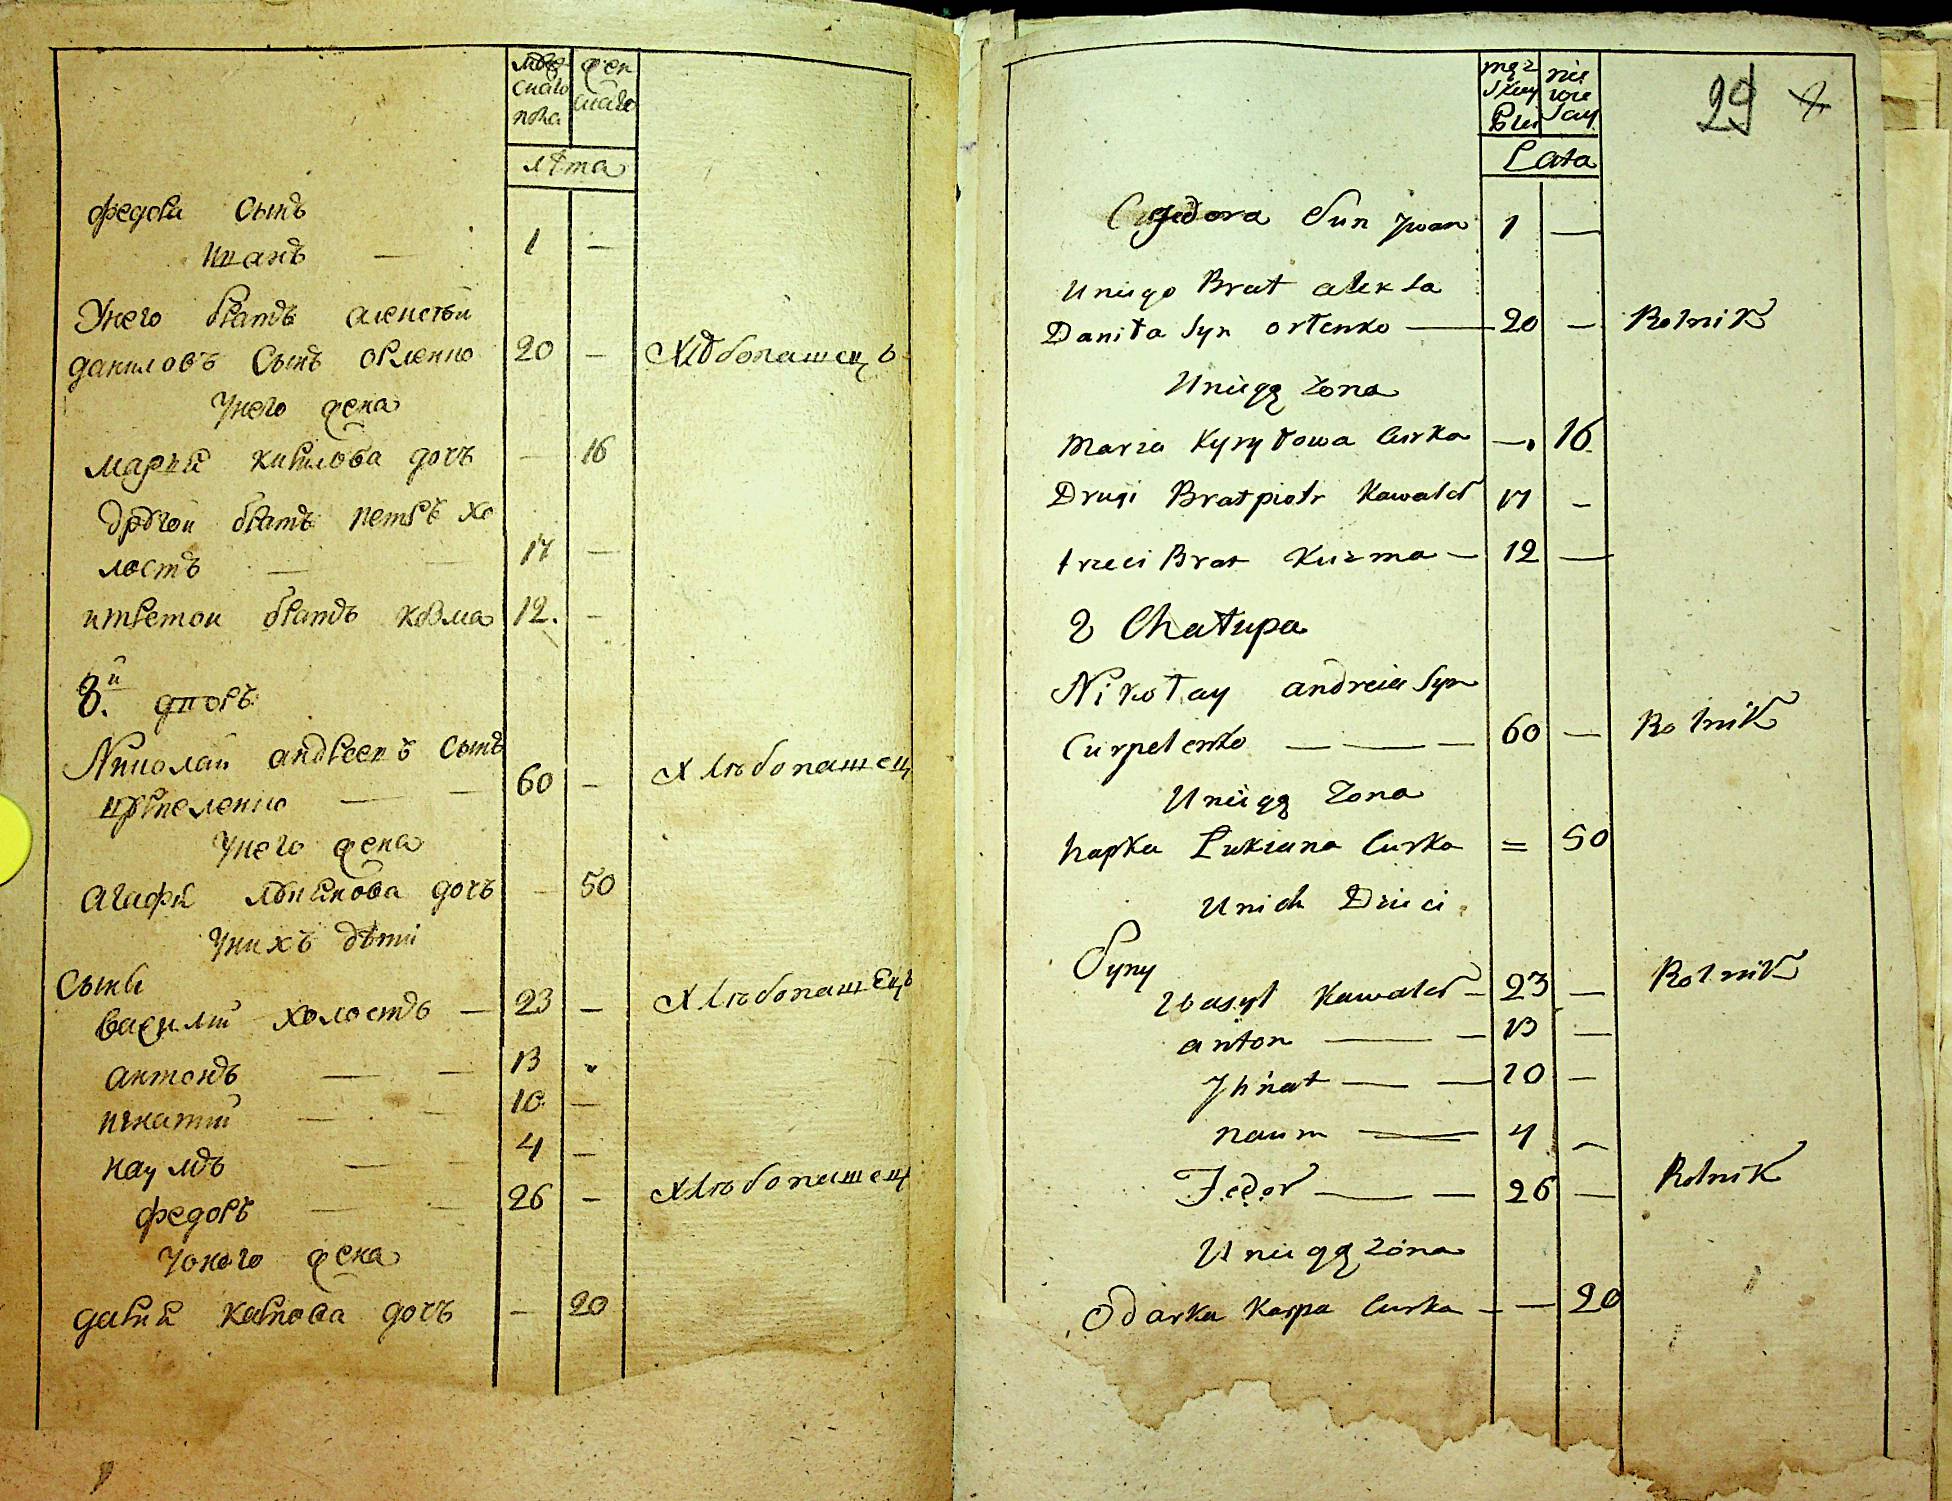 мỤж
скаго
пола
жен
скаго
лѣта
Федора сынъ
Иванъ — 1 —
Унего братъ алексѣй
даниловъ сынъ орленко 20 — Хлѣбопашецъ
Унего жена
марья кирилова дочъ — 16
другой братъ петръ хо
лостъ — — 17 —
итретои братъ козма 12. —
8.й дворъ
Николай андреевъ сынъ
цюрпеленко — — 60 — Хлѣбопашец
Унего жена
агафя лукянова дочъ — 50
Унихъ дѣти
Сыны
василий холостъ — 23 — Хлѣбопашецъ
антонъ — — 13 „
игнатий — — 10 —
наумъ — — 4 —
федоръ — — 26 — Хлѣбопашец
Уоного жена
дария карпова дочъ — 20
męz
skey
Płci
nie
wie
scey
Lata
29
Fedora Sun Jwan 1 —
Uniego Brat alexsa
Daniła Syn orlenko — 20 — Rolnik
Uniego żona
Maria Kyryłowa Curka — 16
Drugi Brat piotr Kawaler 17 —
trzeci Brat Kuzma — 12 —
8 Chałupa
Nikołay andreia Syn
Curpelenko — — — 60 — Rolnik
Uniego Zona
hapka Łukiana Curka = 50
Unich Dzieci
Syny
Wasyl Kawaler — 23 — Rolnik
anton — — 13 —
Jhnat — — 10 —
naum — 4 —
Fedor — — 26 — Rolnik
Uniego żona
Odarka Karpa Curka — — 20